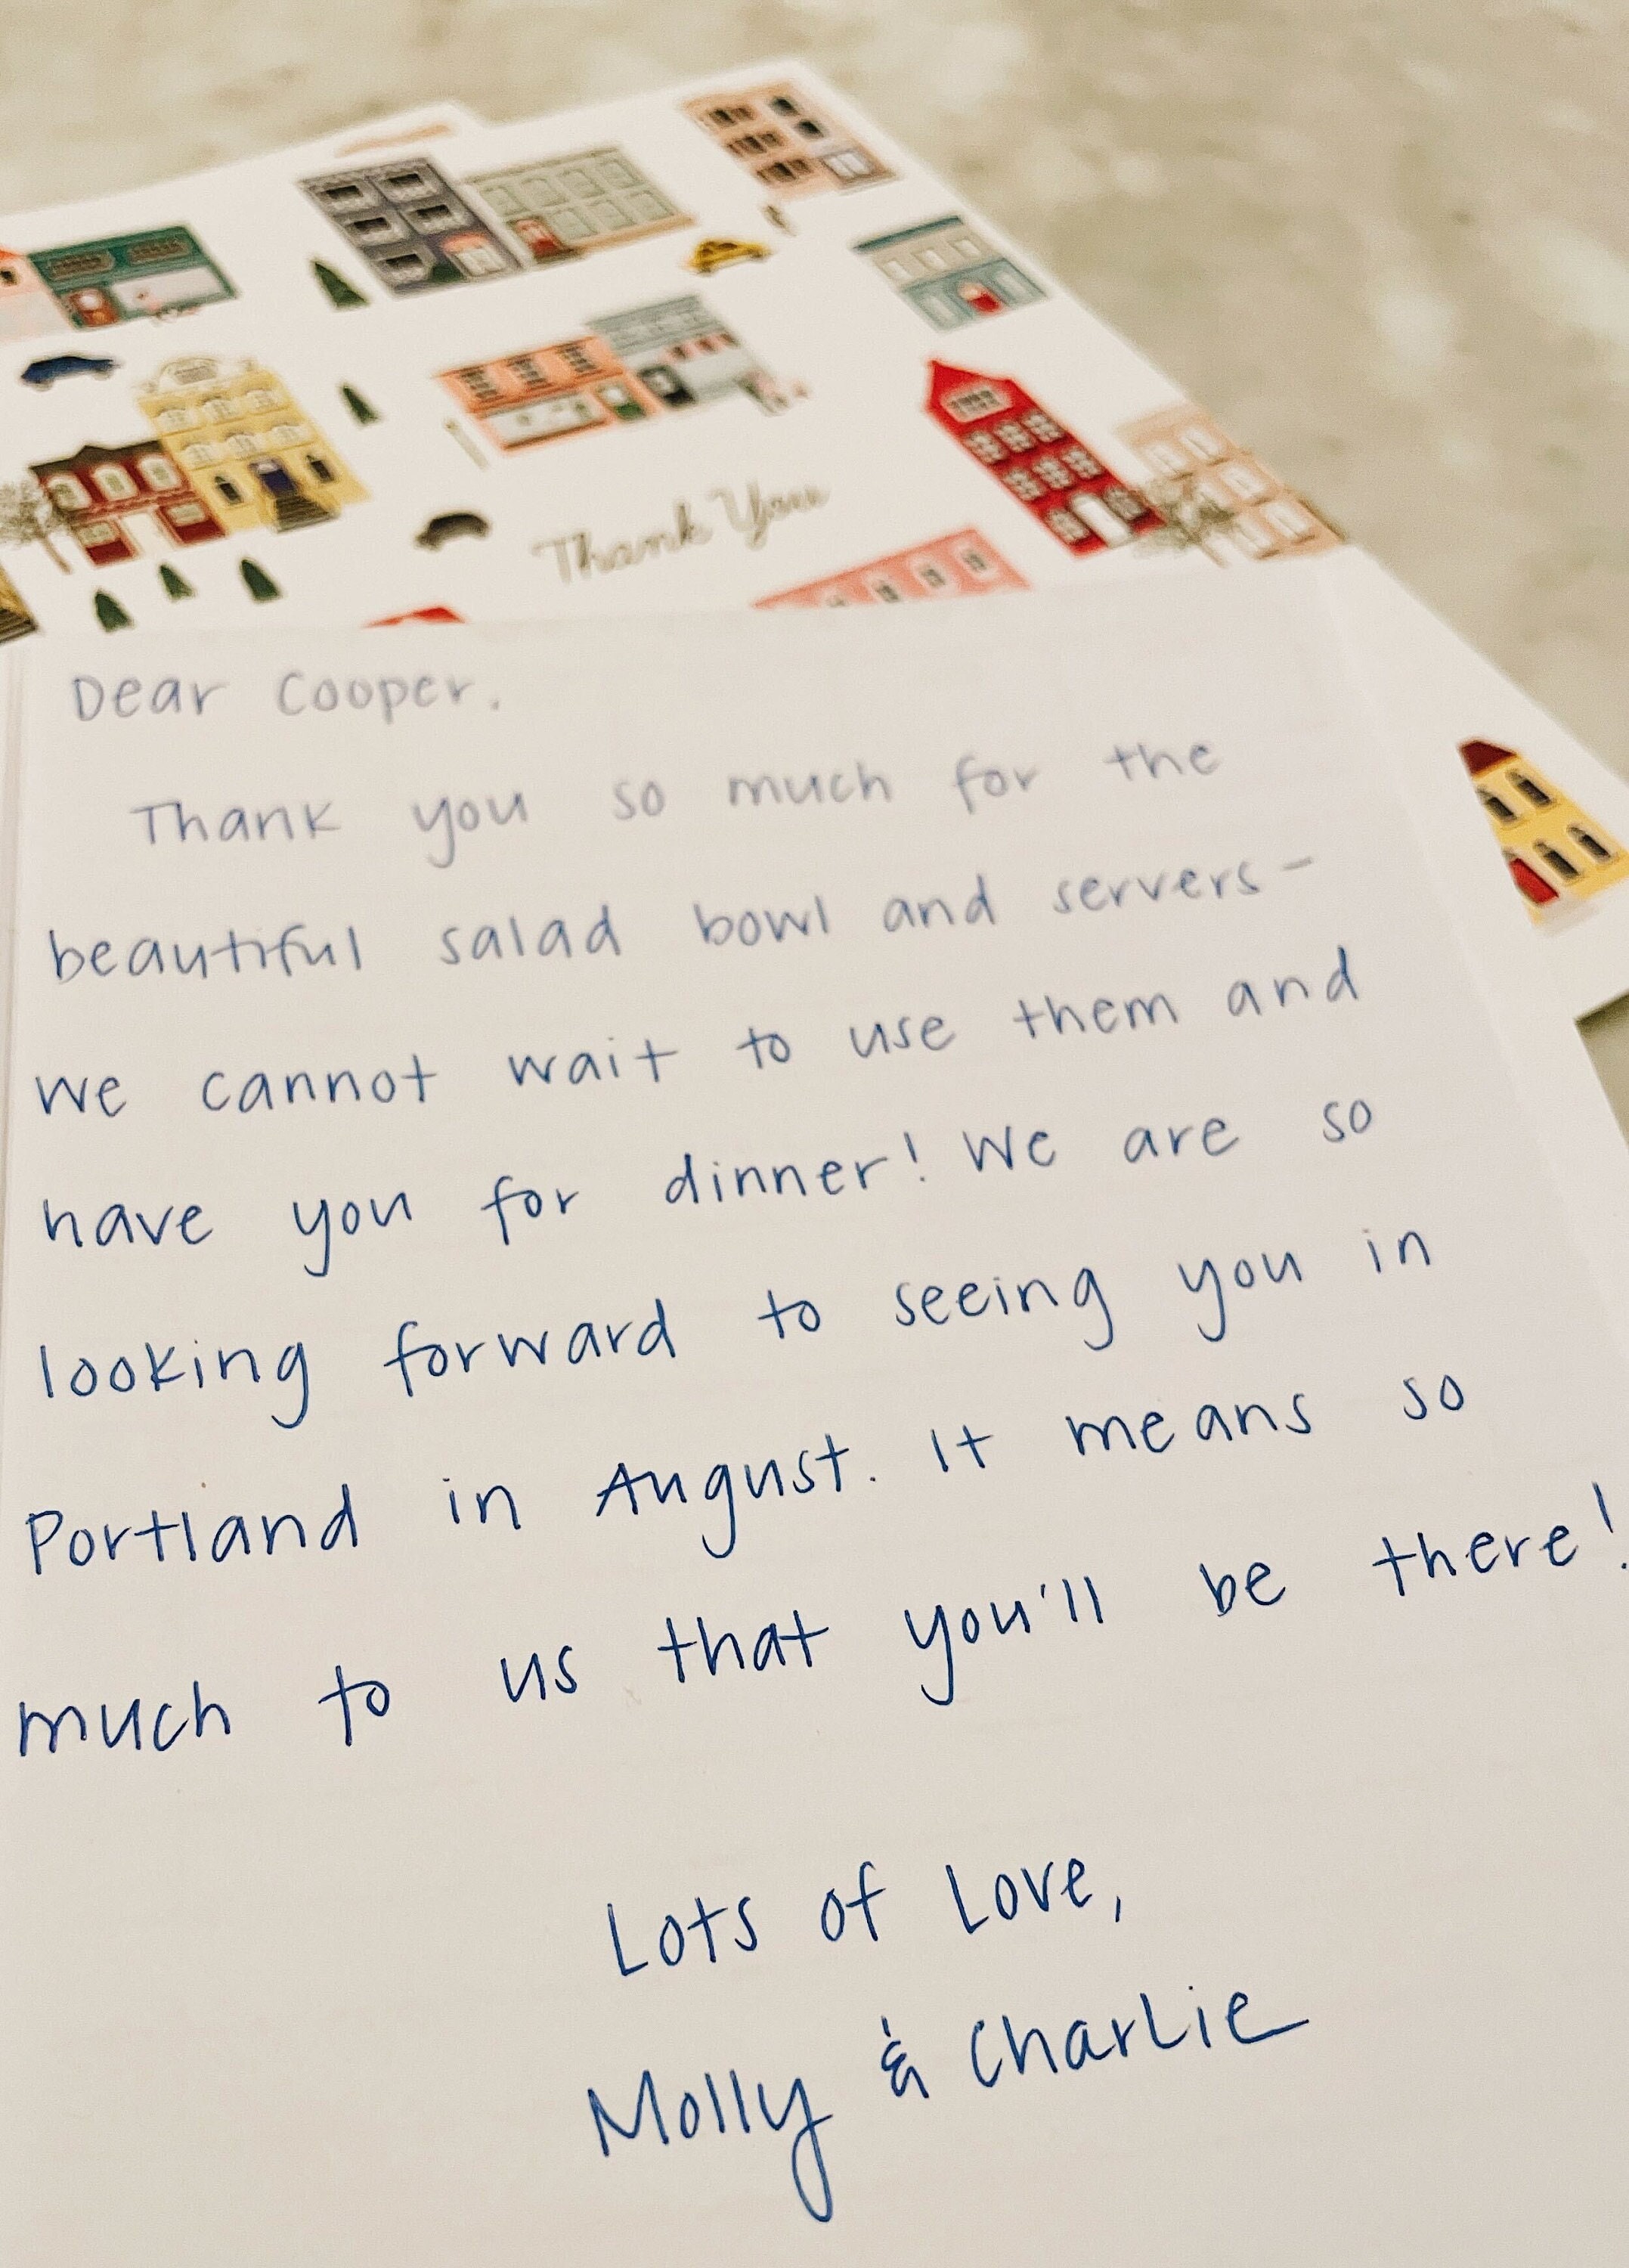 Thank You
Dear Cooper,
Thank you so much for the
beautiful salad bowl and servers-
We cannot wait to use them and
have you for dinner! We are so
looking forward to seeing you in
Portland in August. It means so
much to us that you'll be there!
Lots of Love,
Molly & Charlie